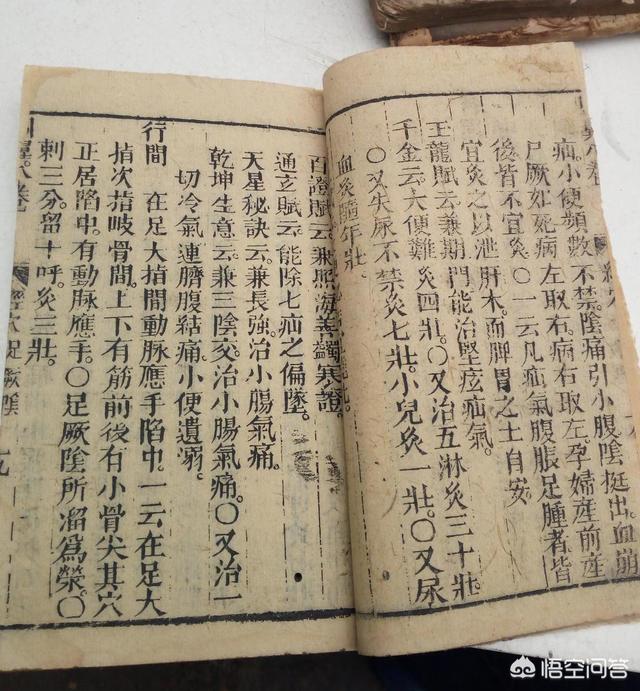 疝。小便頻數不禁。陰痛引小腹。陰挺出。血崩
尸厥如死。病左取右。病右取左。孕婦產前產
後皆不宜灸。〇一云凡疝氣腹脹足腫者皆
宜灸之。以泄肝木。而脾胃之土自安。
玉龍賦云兼期門能治堅痃疝氣。
千金云大便難灸四壯。〇又治五淋灸三十壯
〇又失尿不禁灸七壯。小兒灸一壯。〇又尿
血灸隨年壯。
百證賦云兼照海善蠲寒證。
通玄賦云能除七疝之偏墜。
天星秘訣云兼長強。治小腸氣痛。
乾坤生意云兼三陰交治小腸氣痛。〇又治一
切冷氣連臍腹結痛。小便遺溺。
行間 在足大指間動脉應手陷中。一云在足大
指次指岐骨間。上下有筋。前後有小骨尖。其穴
正居陷中。有動脉應手。〇足厥陰所溜爲滎。〇
刺三分。留十呼。灸三壯。
經穴足厥陰 九
悟空问答